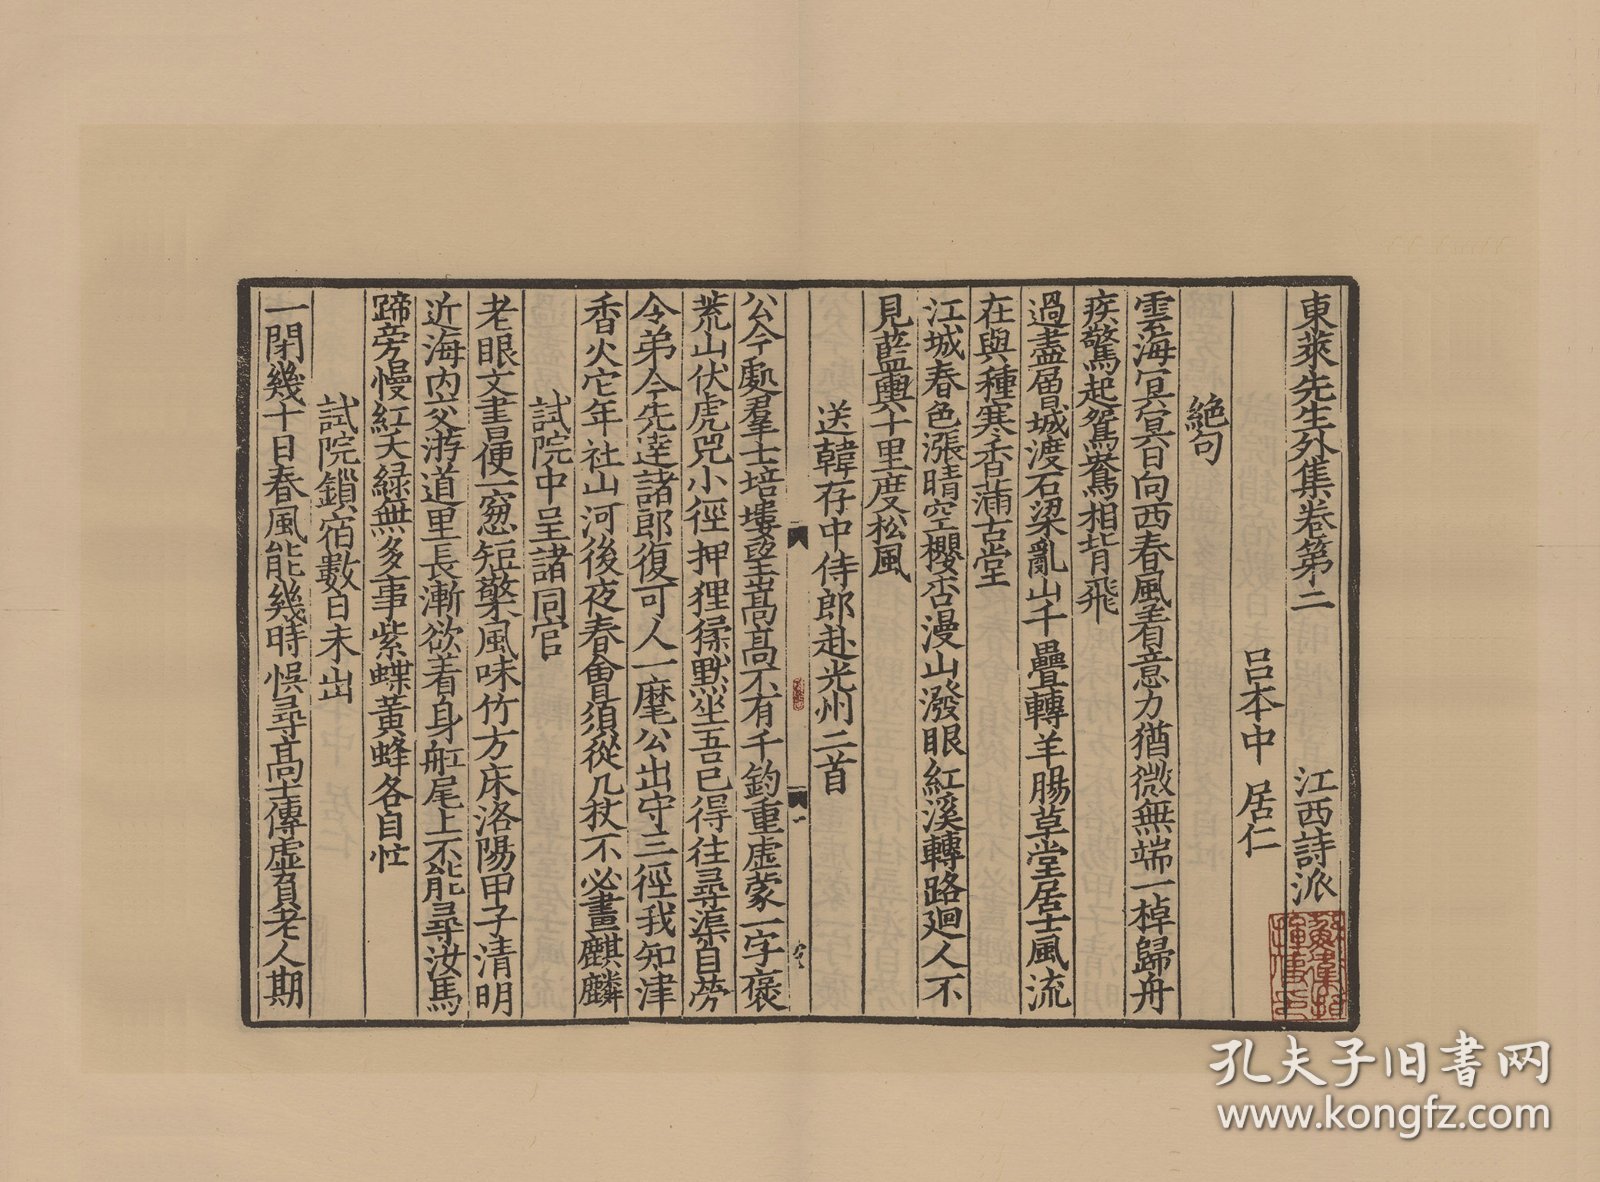 東萊先生外集卷第二　江西詩派
呂本中　居仁
絶句
雲海冥冥日向西春風著意力猶微無端一棹歸舟
疾驚起鴛鴦相背飛
過盡層城渡石梁亂山千疊轉羊腸草堂居士風流
在與種寒香蒲古堂
江城春色漲晴空櫻杏漫山潑眼紅溪轉路廻人不
見藍輿十里度松風
送韓存中侍郎赴光州二首
公今處羣士培塿望嵩高不有千鈞重虛蒙一字褒
荒山伏虎兕小徑押狸猱默坐吾已得往尋渠自勞
令弟今先逹諸郎復可人一麾公出守三徑我知津
香火它年社山河後夜春會須從几杖不必畫麒麟
試院中呈諸同官
老眼文書便一窓短檠風味竹方床洛陽甲子清明
近海内交游道里長漸欲着身舡尾上不能尋汝馬
蹄旁慢紅天緑無多事紫蝶黃蜂各自忙
試院鎖宿數日未出
一閉幾十日春風能幾時悞尋高士傳虛負老人期
孔夫子旧书网
www.kongfz.com